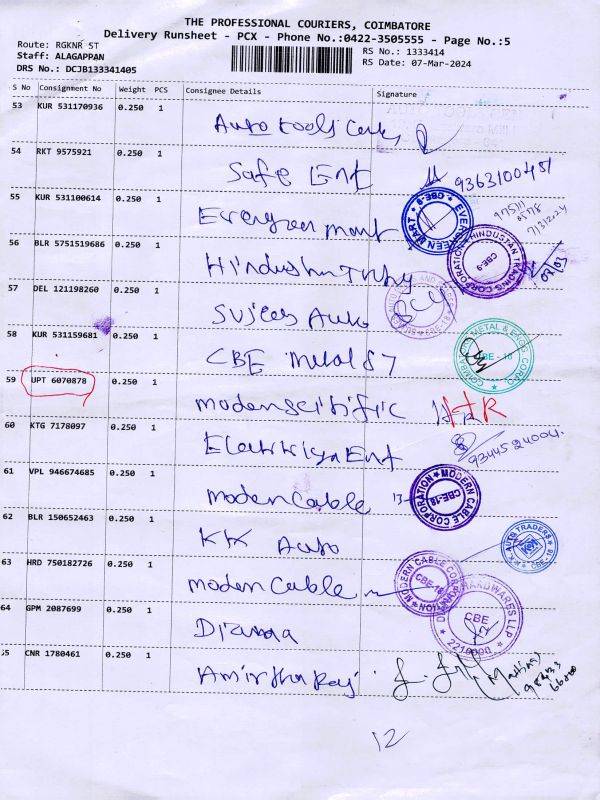 THE PROFESSIONAL COURIERS, COIMBATORE
Delivery Runsheet - PCX - Phone No.:0422-3505555 - Page No.:5
Route: RGKNR ST
Staff: ALAGAPPAN
DRS No.: DCJB133341405
RS No.: 1333414
RS Date: 07-Mar-2024
S No Consignment No Weight PCS Consignee Details Signature
53 KUR 531170936 0.250 1 Auto tools
54 RKT 9575921 0.250 1 Safe Ent 9363100451
55 KUR 531100614 0.250 1 Evergreen mart
EVERGREEN MART CBE-9
56 BLR 5751519686 0.250 1 Hindustan
HINDUSTAN TRADING CORPORATION CBE-9
57 DEL 121198260 0.250 1 Sujees Auto
58 KUR 531159681 0.250 1 CBE metal
COIMBATORE METAL & ENGG. CORPO CBE - 18
59 UPT 6070878 0.250 1 modenscitific HTR
60 KTG 7178097 0.250 1 Ent 9344524004
61 VPL 946674685 0.250 1 modencable 13
MODERN CABLE CORPORATION CBE-18
62 BLR 150652463 0.250 1 KK Auto
K.K. AUTO TRADERS
63 HRD 750182726 0.250 1 modencable
MODERN CABLE CORPORATION CBE-18
64 GPM 2087699 0.250 1
HARDWARES LLP CBE
65 CNR 1780461 0.250 1 Amirtharaj
12